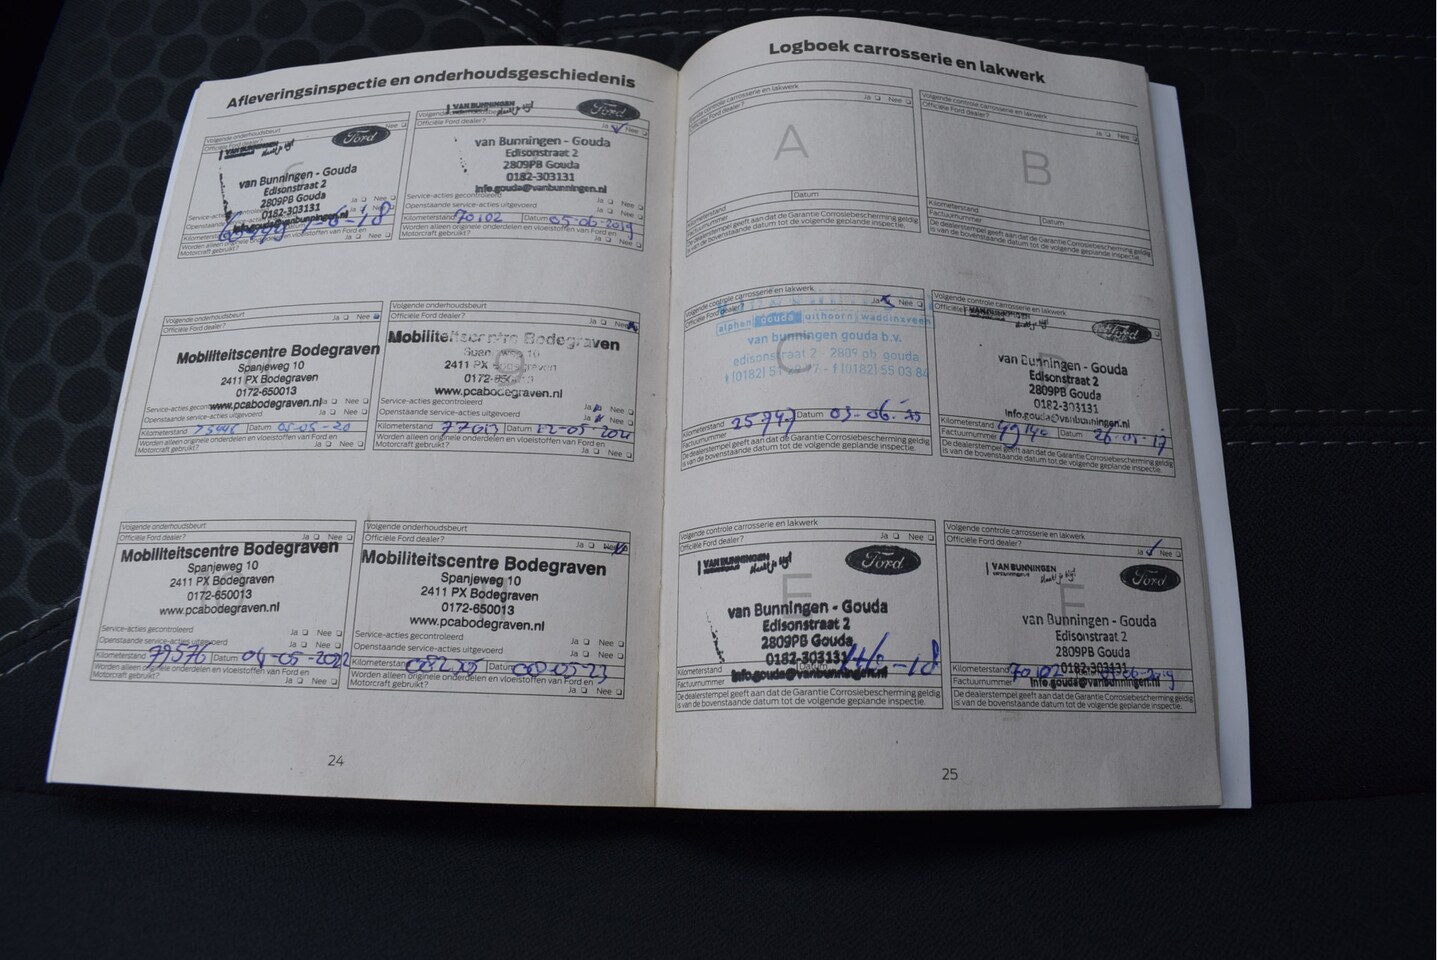 Afleveringsinspectie en onderhoudsgeschiedenis
Volgende onderhoudsbeurt
Officiële Ford dealer? Nee
Ford
VAN BUNNINGEN
van Bunningen - Gouda
Edisonstraat 2
2809PB Gouda
0182-303131
info.gouda@vanbunningen.nl
Service-acties
Ja Nee
Openstaande service-acties
Ja Nee
1-6-18
Worden alleen originele onderdelen en vloeistoffen van Ford en
Motorcraft gebruikt? Ja Nee
VAN BUNNINGEN
Officiële Ford dealer? Ja Nee
Ford
van Bunningen - Gouda
Edisonstraat 2
2809PB Gouda
0182-303131
info.gouda@vanbunningen.nl
Service-acties gecontroleerd Ja Nee
Openstaande service-acties uitgevoerd Ja Nee
Kilometerstand 70102 Datum 05-06-2019
Worden alleen originele onderdelen en vloeistoffen van Ford en
Motorcraft gebruikt? Ja Nee
Volgende onderhoudsbeurt
Officiële Ford dealer? Ja Nee
Mobiliteitscentre Bodegraven
Spanjeweg 10
2411 PX Bodegraven
0172-650013
www.pcabodegraven.nl
Ja Nee
Openstaande service-acties uitgevoerd Ja Nee
Kilometerstand Datum 05-05-20
Worden alleen originele onderdelen en vloeistoffen van Ford en
Motorcraft gebruikt? Ja Nee
Volgende onderhoudsbeurt
Officiële Ford dealer? Ja Nee
Mobiliteitscentre Bodegraven
Spanjeweg 10
2411 PX Bodegraven
www.pcabodegraven.nl
Service-acties gecontroleerd Ja Nee
Openstaande service-acties uitgevoerd Ja Nee
Kilometerstand 77013 Datum 12-05-2021
Worden alleen originele onderdelen en vloeistoffen van Ford en
Motorcraft gebruikt? Ja Nee
Volgende onderhoudsbeurt
Officiële Ford dealer? Ja Nee
Mobiliteitscentre Bodegraven
Spanjeweg 10
2411 PX Bodegraven
0172-650013
www.pcabodegraven.nl
Service-acties gecontroleerd Ja Nee
Openstaande service-acties uitgevoerd Ja Nee
Kilometerstand 79576 Datum 04-05-2022
Worden alleen originele onderdelen en vloeistoffen van Ford en
Motorcraft gebruikt? Ja Nee
Volgende onderhoudsbeurt
Officiële Ford dealer? Ja
Mobiliteitscentre Bodegraven
Spanjeweg 10
2411 PX Bodegraven
0172-650013
www.pcabodegraven.nl
Service-acties gecontroleerd Ja Nee
Openstaande service-acties uitgevoerd Ja Nee
Kilometerstand Datum
Worden alleen originele onderdelen en vloeistoffen van Ford en
Motorcraft gebruikt? Ja Nee
24
Logboek carrosserie en lakwerk
Volgende controle carrosserie en lakwerk
Officiële Ford dealer? Ja Nee
A
Kilometerstand Datum
Factuurnummer
De dealerstempel geeft aan dat de Garantie Corrosiebescherming geldig
is van de bovenstaande datum tot de volgende geplande inspectie.
Volgende controle carrosserie en lakwerk
Officiële Ford dealer? Ja Nee
B
Kilometerstand
Factuurnummer Datum
De dealerstempel geeft aan dat de Garantie Corrosiebescherming geldig
is van de bovenstaande datum tot de volgende geplande inspectie.
Volgende controle carrosserie en lakwerk
Officiële Ford dealer? Ja Nee
alphen gouda uithoorn waddinxveen
van bunningen gouda b.v.
edisonstraat 2 - 2809 pb gouda
C
Kilometerstand 25747 Datum
Factuurnummer
De dealerstempel geeft aan dat de Garantie Corrosiebescherming geldig
is van de bovenstaande datum tot de volgende geplande inspectie.
Volgende controle carrosserie en lakwerk
VAN BUNNINGEN
Ford
van Bunningen - Gouda
Edisonstraat 2
2809PB Gouda
0182-303131
info.gouda@vanbunningen.nl
Kilometerstand 49140 Datum
Factuurnummer
De dealerstempel geeft aan dat de Garantie Corrosiebescherming geldig
is van de bovenstaande datum tot de volgende geplande inspectie.
Volgende controle carrosserie en lakwerk
Officiële Ford dealer? Ja Nee
VAN BUNNINGEN
Ford
E
van Bunningen - Gouda
Edisonstraat 2
2809PB Gouda
0182-303131
info.gouda@vanbunningen.nl
Kilometerstand Datum
Factuurnummer
De dealerstempel geeft aan dat de Garantie Corrosiebescherming geldig
is van de bovenstaande datum tot de volgende geplande inspectie.
Volgende controle carrosserie en lakwerk
Officiële Ford dealer? Ja Nee
VAN BUNNINGEN
Ford
F
van Bunningen - Gouda
Edisonstraat 2
2809PB Gouda
0182-303131
info.gouda@vanbunningen.nl
Kilometerstand 70102
Factuurnummer
De dealerstempel geeft aan dat de Garantie Corrosiebescherming geldig
is van de bovenstaande datum tot de volgende geplande inspectie.
25